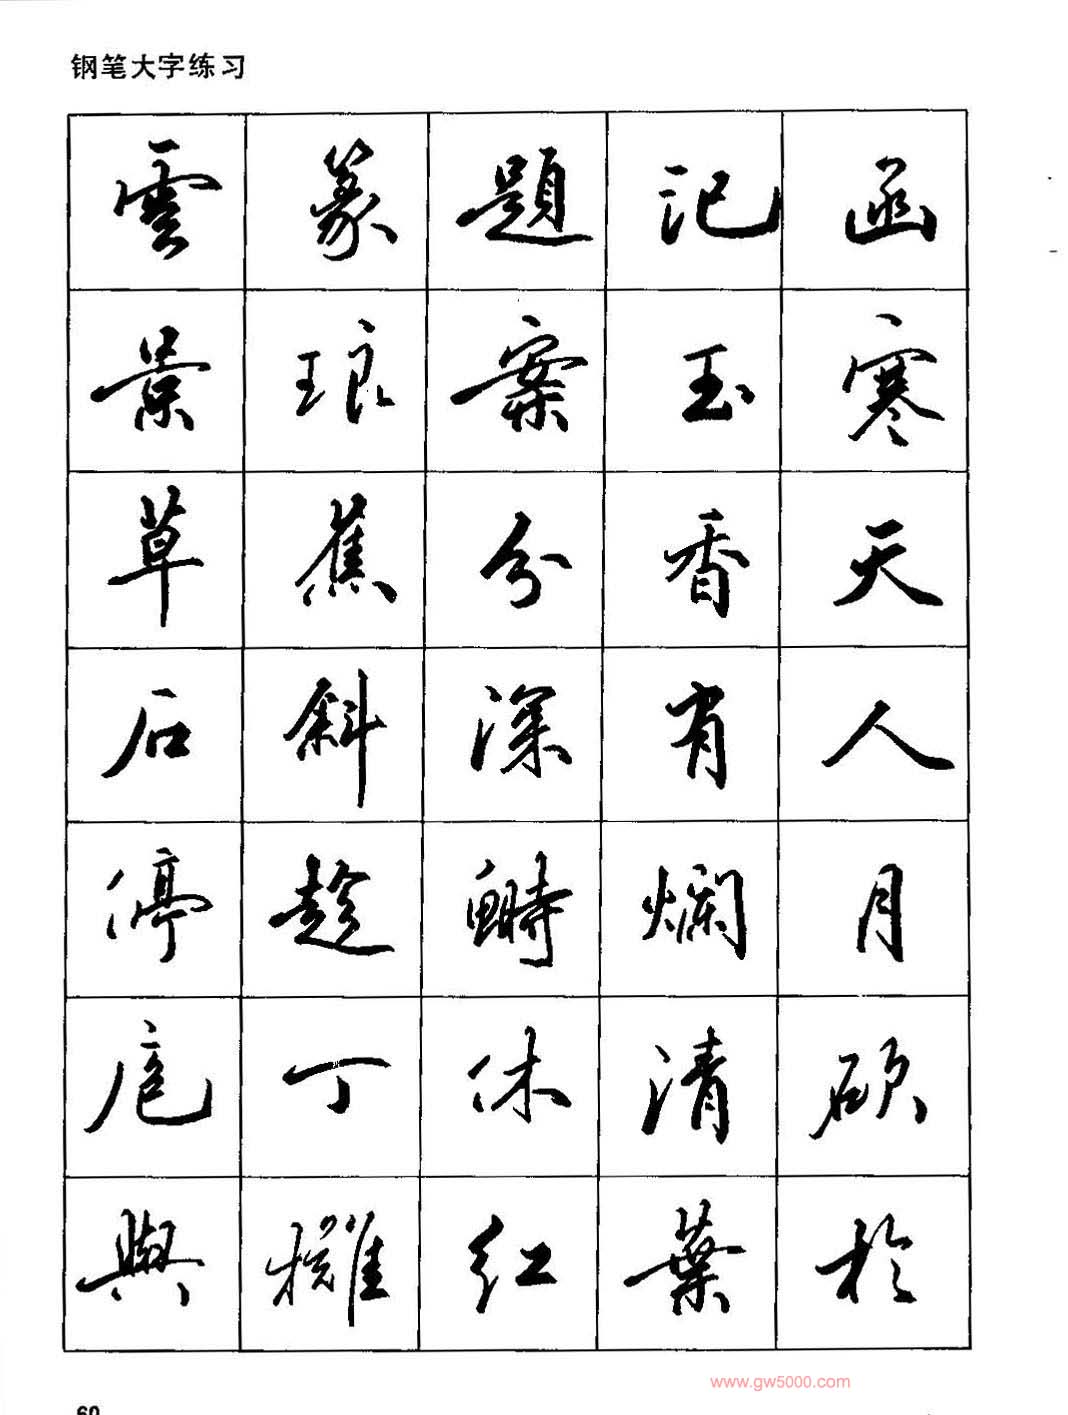 钢笔大字练习
雲篆題記函
景琅案玉寒
草蕉分香天
石斜深有人
停趁鰣爛月
扈丁休清碩
與櫂紅葉於
www.gw5000.com
60